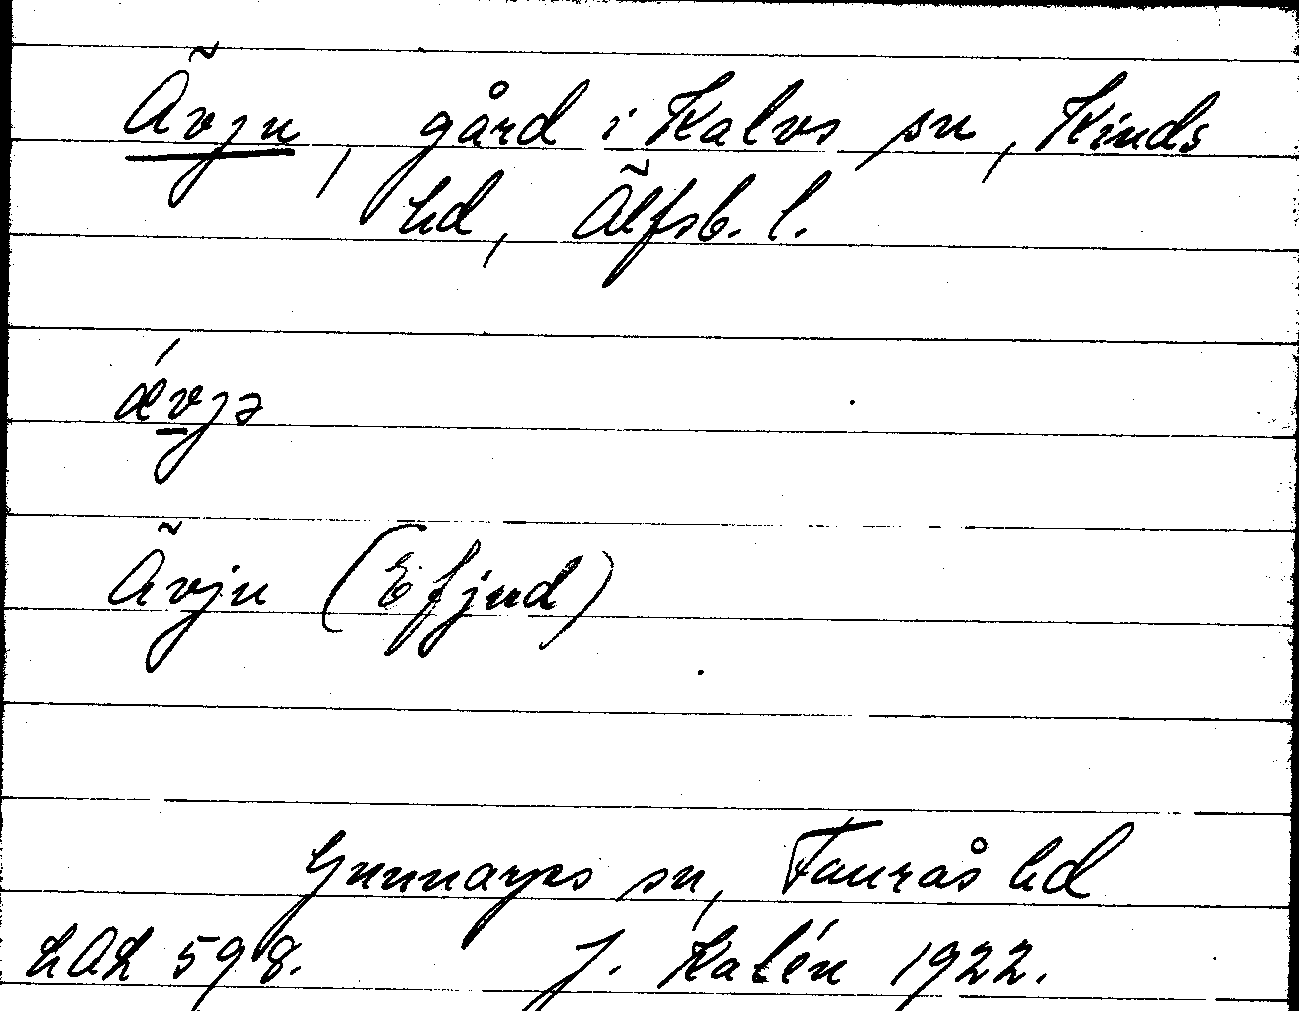 Ävju, gård i Kalvs sn, Kinds
hd, Älfsb. l.
ǽvjə
Ävju (Efjud)
Gunnarps sn, Faurås hd
LAL 598. J. Kalén 1922.